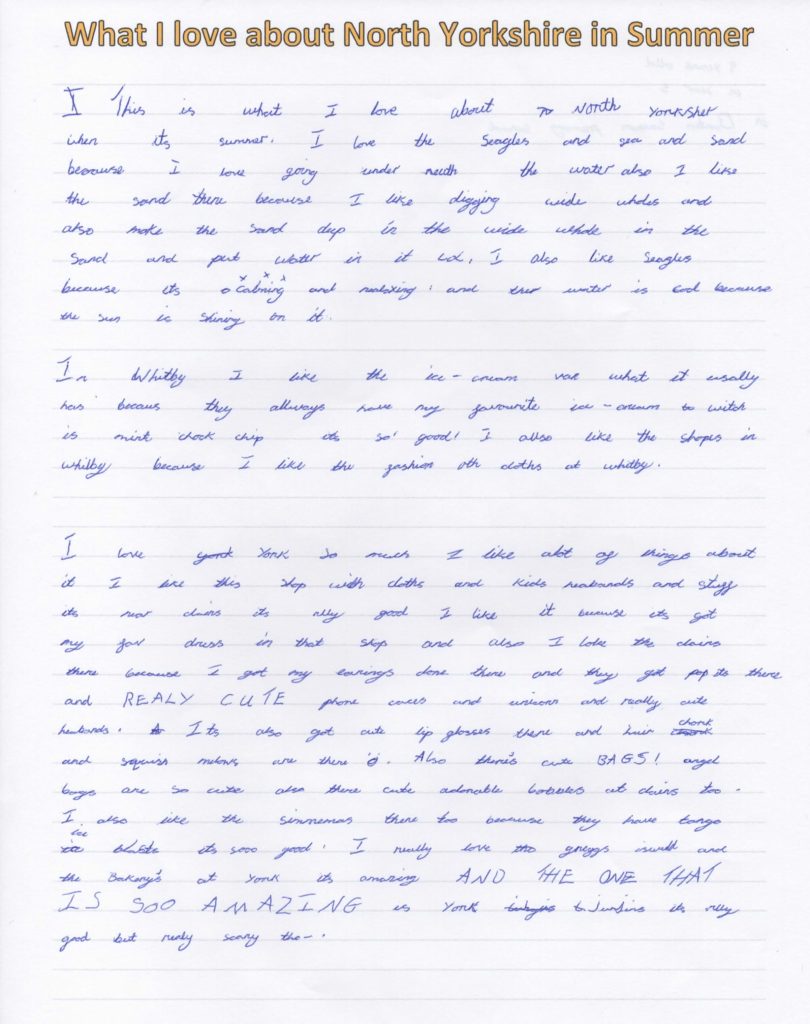 What I love about North Yorkshire in Summer
I This is what I love about North Yorksher
when its summer. I love the Seagles and sea and sand
because I love going under neath the water also I like
the sand there because I like digging wide wholes and
also make the sand deep in the wide whole in the
Sand and put water in it lol. I also like Seagles
because its calming and realaxing! and ther water is cool because
the sun is shining on it.
In Whitby I like the ice-cream van what it usally
has becaus they allways have my favourite ice-cream to witch
is mint chock chip its so good! I allso like the shops in
whitby because I like the fashion oth cloths at whitby.
I love york York so much I like alot of things about
it I like this shop with cloths and kids heabands and stuff
its near clairs its rlly good I like it because its got
my fav dress in that shop and also I love the clairs
there because I got my earings done there and they got pop its there
and REALY CUTE phone cases and unicorn and really cute
heabands. Its also got cute lip glosses there and hair chonk
and squish melows are there. Also there's cute BAGS! angel
bags are so cute also there cute adorable bobbles at clairs too.
I also like the sinnemas there too because they have tango
ice blaste its sooo good! I really love the greggs iswell and
the Bakery's at York its amazing AND THE ONE THAT
IS SOO AMAZING is York its rlly
good but realy scary tho-.